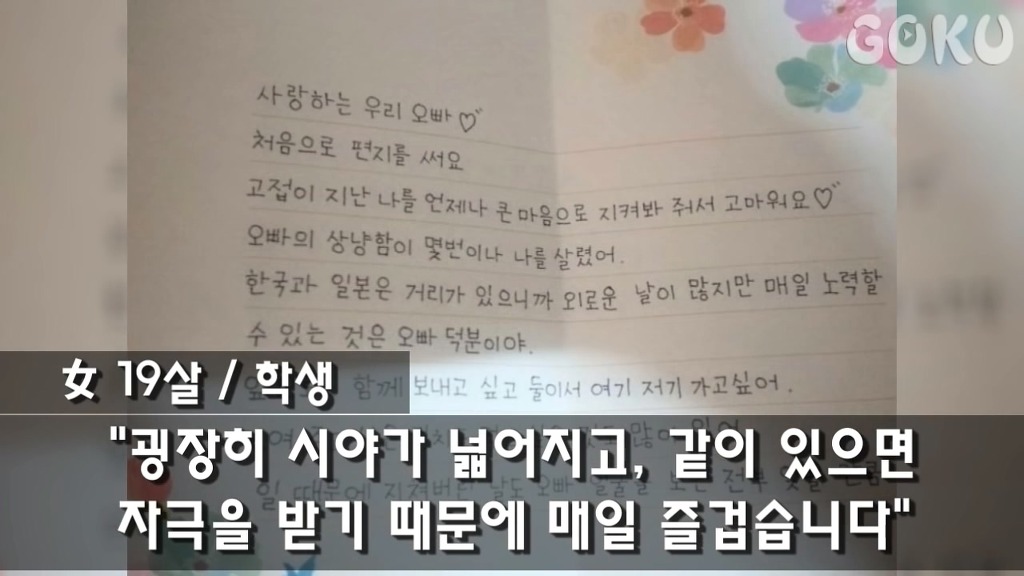 GOKU
사랑하는 우리 오빠♡
처음으로 편지를 써요
고접이 지난 나를 언제나 큰 마음으로 지켜봐 줘서 고마워요♡
오빠의 상냥함이 몇번이나 나를 살렸어.
한국과 일본은 거리가 있으니까 외로운 날이 많지만 매일 노력할
수 있는 것은 오빠 덕분이야.
함께 보내고 싶고 둘이서 여기 저기 가고싶어.
女 19살 / 학생
"굉장히 시야가 넓어지고, 같이 있으면
자극을 받기 때문에 매일 즐겁습니다"